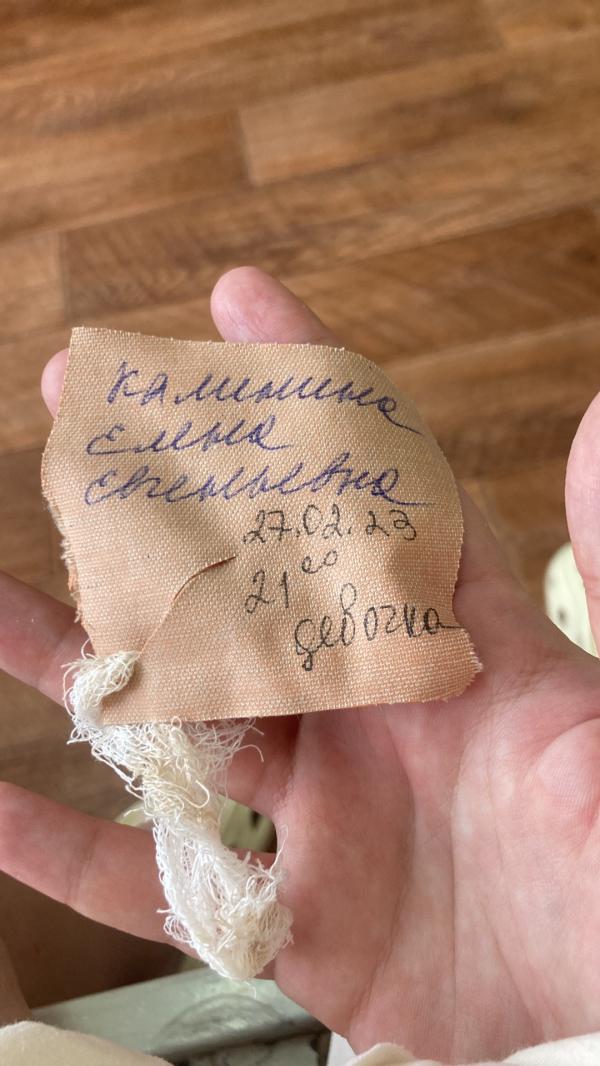 Калинина
Елена
Евгеньевна
27.02.23
21⁰⁰
девочка